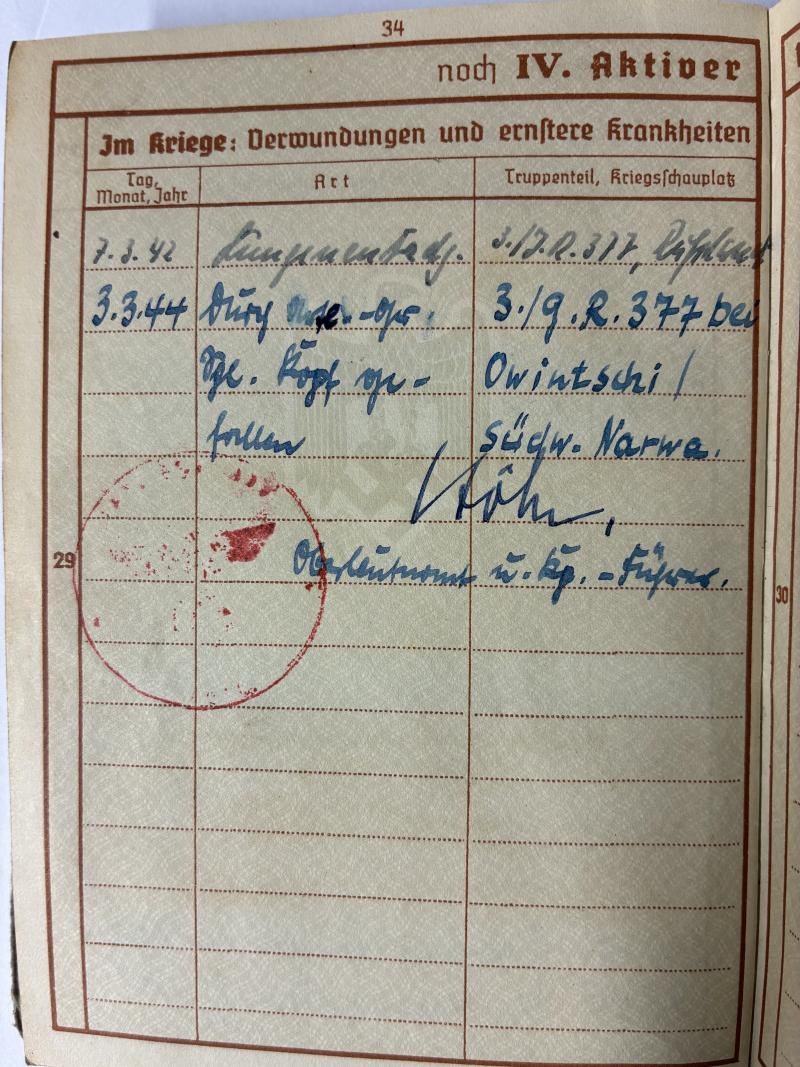 34
noch IV. Aktiver
Im Kriege: Verwundungen und ernstere Krankheiten
Tag, Monat, Jahr
Art
Truppenteil, Kriegsschauplatz
7.3.42 Lungenentzdg. 3./J.R. 377, Rußland
3.3.44 Durch -Gr. 3./G.R. 377 bei
Spl. Kopf ge- Owintschi /
fallen südw. Narwa.
Oberleutnant u. Kp.-Führer.
29
30